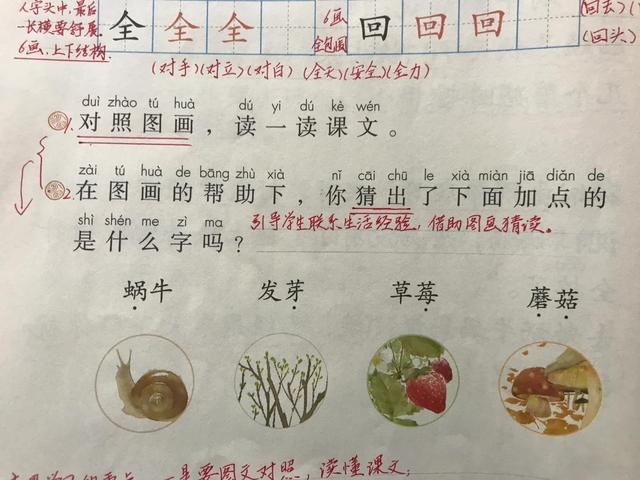 人字头中,最后
一长横要舒展。
6画、上下结构.
全 全 全
6画
全包围
回 回 回
(回去)
(回头)
(对手)(对立)(对白) (全天)(安全)(全力)
duì zhào tú huà dú yi dú kè wén
1. 对照图画，读一读课文。
zài tú huà de bāng zhù xià nǐ cāi chū le xià miàn jiā diǎn de
2. 在图画的帮助下，你猜出了下面加点的
shì shén me zì ma
是什么字吗？ 引导学生联系生活经验,借助图画猜读。
蜗牛 发芽 草莓 蘑菇
一是要图文对照,读懂课文;